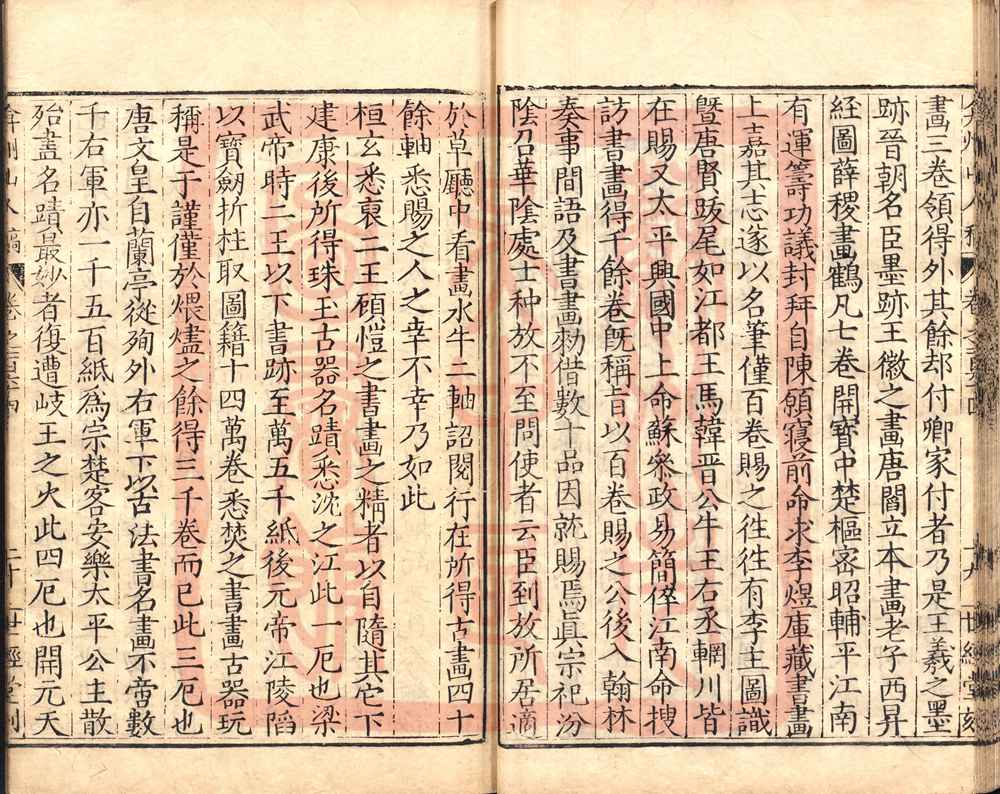 畫三卷領得外其餘却付卿家付者乃是王羲之墨
跡晉朝名臣墨跡王徽之畫唐閻立本畫老子西昇
經圖薛稷畫鶴凡七卷開寶中楚樞密昭輔平江南
有運籌功議封拜自陳願寢前命求李煜庫藏書畫
上嘉其志遂以名筆僅百卷賜之徃徃有李主圖識
曁唐賢䟦尾如江都王馬韓晉公牛王右丞輞川皆
在賜又太平興國中上命蘇叅政易簡倅江南命搜
訪書畫得千餘卷旣稱旨以百卷賜之公後入翰林
奏事間語及書畫勑借數十品因就賜焉眞宗祀汾
陰召華陰處士种放不至問使者云臣到放所居適
於草廳中看畫水牛二軸詔閱行在所得古畫四十
餘軸悉賜之人之幸不幸乃如此
桓玄悉裒二王顧愷之書畫之精者以自隨其它下
建康後所得珠玉古器名蹟悉沈之江此一厄也梁
武帝時二王以下書跡至萬五千紙後元帝江陵䧟
以寶劒折柱取圖籍十四萬卷悉焚之書畫古器玩
稱是于謹僅於煨燼之餘得三千卷而已此三厄也
唐文皇自蘭亭從殉外右軍下以古法書名畫不啻數
千右軍亦一千五百紙爲宗楚客安樂太平公主散
殆盡名蹟最妙者復遭岐王之火此四厄也開元天
弇州山人稿 卷之
二十 世經堂刻